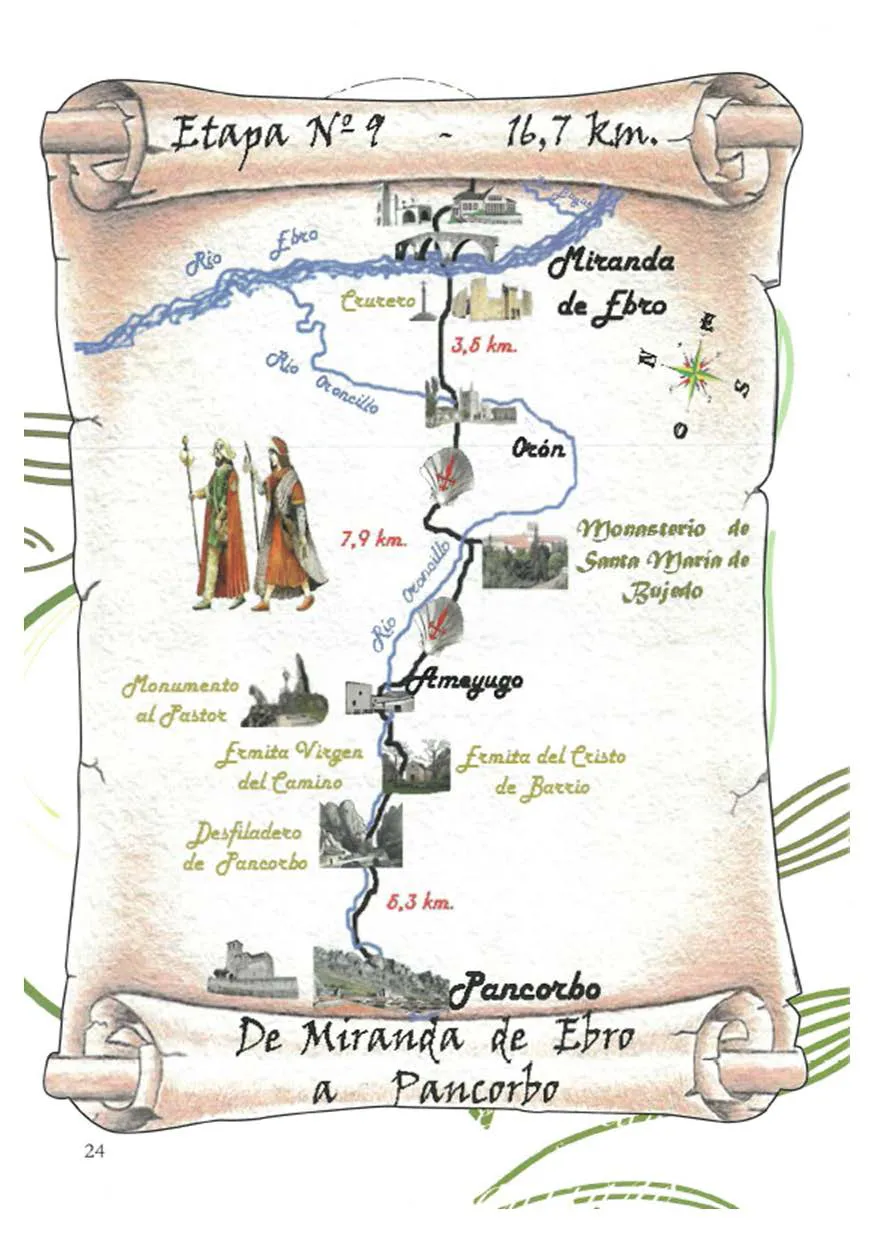 Etapa Nº 9 - 16,7 km.
Río Ebro
Miranda
de Ebro
Crucero
3,5 km.
E
N
S
O
Río Oroncillo
Orón
7,9 km.
Monasterio de
Santa María de
Bujedo
Río Oroncillo
Ameyugo
Monumento
al Pastor
Ermita Virgen
del Camino
Ermita del Cristo
de Barrio
Desfiladero
de Pancorbo
5,3 km.
Pancorbo
De Miranda de Ebro
a Pancorbo
24